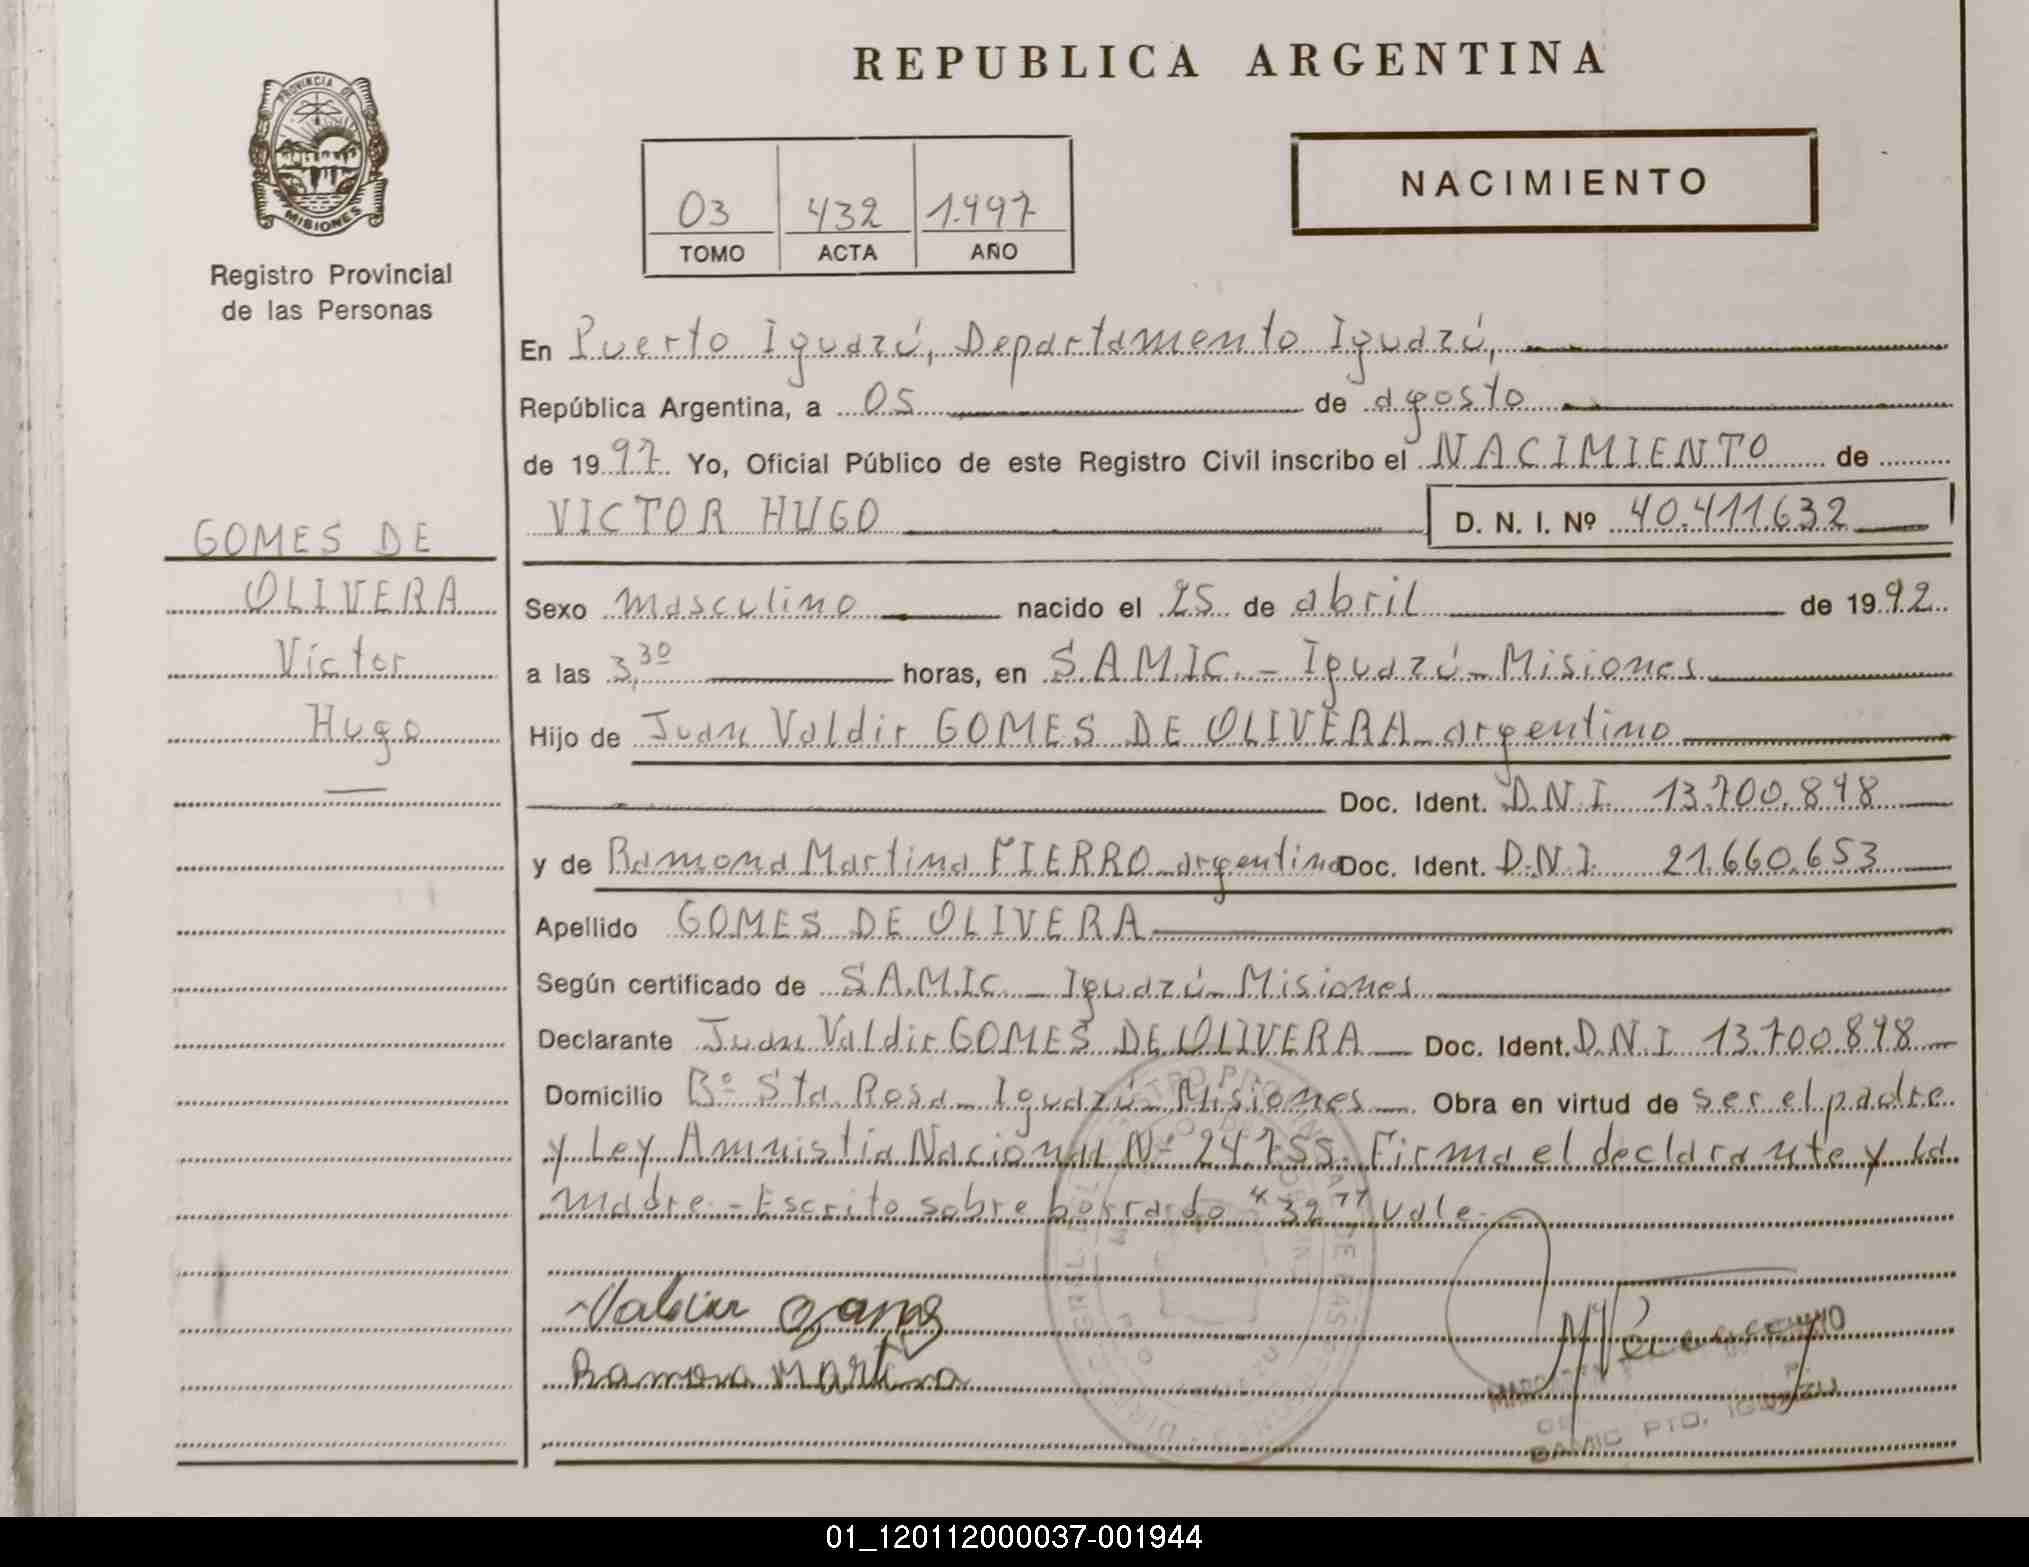 REPUBLICA ARGENTINA
PROVINCIA DE
MISIONES
Registro Provincial
de las Personas
NACIMIENTO
03 432 1.997
TOMO ACTA AÑO
En Puerto Iguazú, Departamento Iguazú,
República Argentina, a 05 de agosto
de 1997 Yo, Oficial Público de este Registro Civil inscribo el NACIMIENTO de
VICTOR HUGO D. N. I. Nº 40.411.632
GOMES DE
OLIVERA
Víctor
Hugo
Sexo masculino nacido el 25 de abril de 1992
a las 3,30 horas, en S.A.M.I.C. - Iguazú - Misiones
Hijo de Juan Valdir GOMES DE OLIVERA - argentino
Doc. Ident. D.N.I. 13.700.898
y de Ramona Martina FIERRO - argentina Doc. Ident. D.N.I. 21.660.653
Apellido GOMES DE OLIVERA
Según certificado de S.A.M.I.C. - Iguazú - Misiones
Declarante Juan Valdir GOMES DE OLIVERA Doc. Ident. D.N.I. 13.700.898
Domicilio Bº Sta. Rosa - Iguazú - Misiones Obra en virtud de ser el padre
y Ley Amnistía Nacional Nº 24.755. Firma el declarante y la
madre. - Escrito sobre borrado "32" vale.
Valdir
Ramona Martina
SAMIC PTO. IGUAZU
01_120112000037-001944